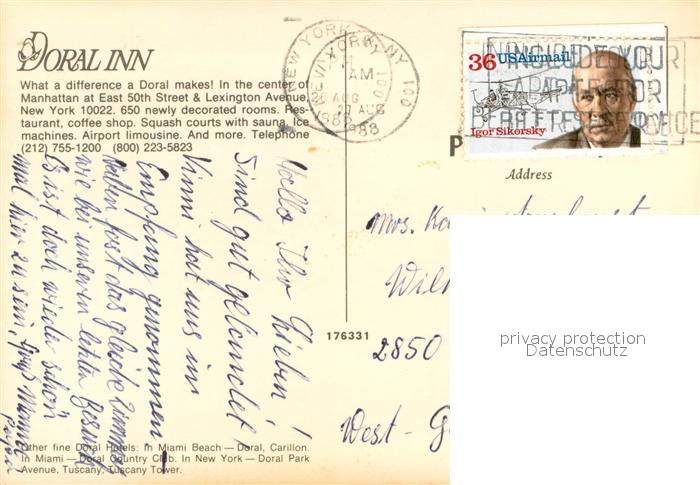 DORAL INN
What a difference a Doral makes! In the center of
Manhattan at East 50th Street & Lexington Avenue,
New York 10022. 650 newly decorated rooms. Res-
taurant, coffee shop. Squash courts with sauna. Ice
machines. Airport limousine. And more. Telephone
(212) 755-1200 (800) 223-5823
Hallo Ihr Lieben!
Sind gut gelandet,
hat uns im
Empfang genommen.
Haben fast das gleiche Zimmer
wie bei unserem letzten Besuch
Es ist doch wieder schön
mal hier zu sein,
Other fine Doral Hotels: In Miami Beach — Doral, Carillon.
In Miami — Doral Country Club. In New York — Doral Park
Avenue, Tuscany, Tuscany Tower.
176331
NEW YORK, NY 100
AM
26 AUG
1988
36 USAirmail
Igor Sikorsky
INCLUDE YOUR
FOR
BETTER SERVICE
Address
Mrs.
2850
West-
privacy protection
Datenschutz